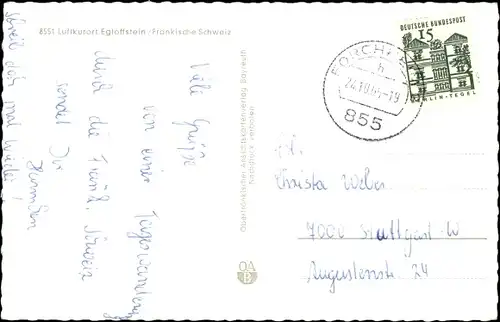 8551 Luftkurort Egloffstein / Fränkische Schweiz
Viele Grüße
von einer
durch die Fränk. Schweiz
sendet Dir
Schreib doch mal wieder!
Oberfränkischer Ansichtskartenverlag Bayreuth
OA
B
DEUTSCHE BUNDESPOST
15
BERLIN-TEGEL
FORCHHEIM
h
-19
855
Frl.
Christa Weber
7000 Stuttgart-W
Augustenstr. 24